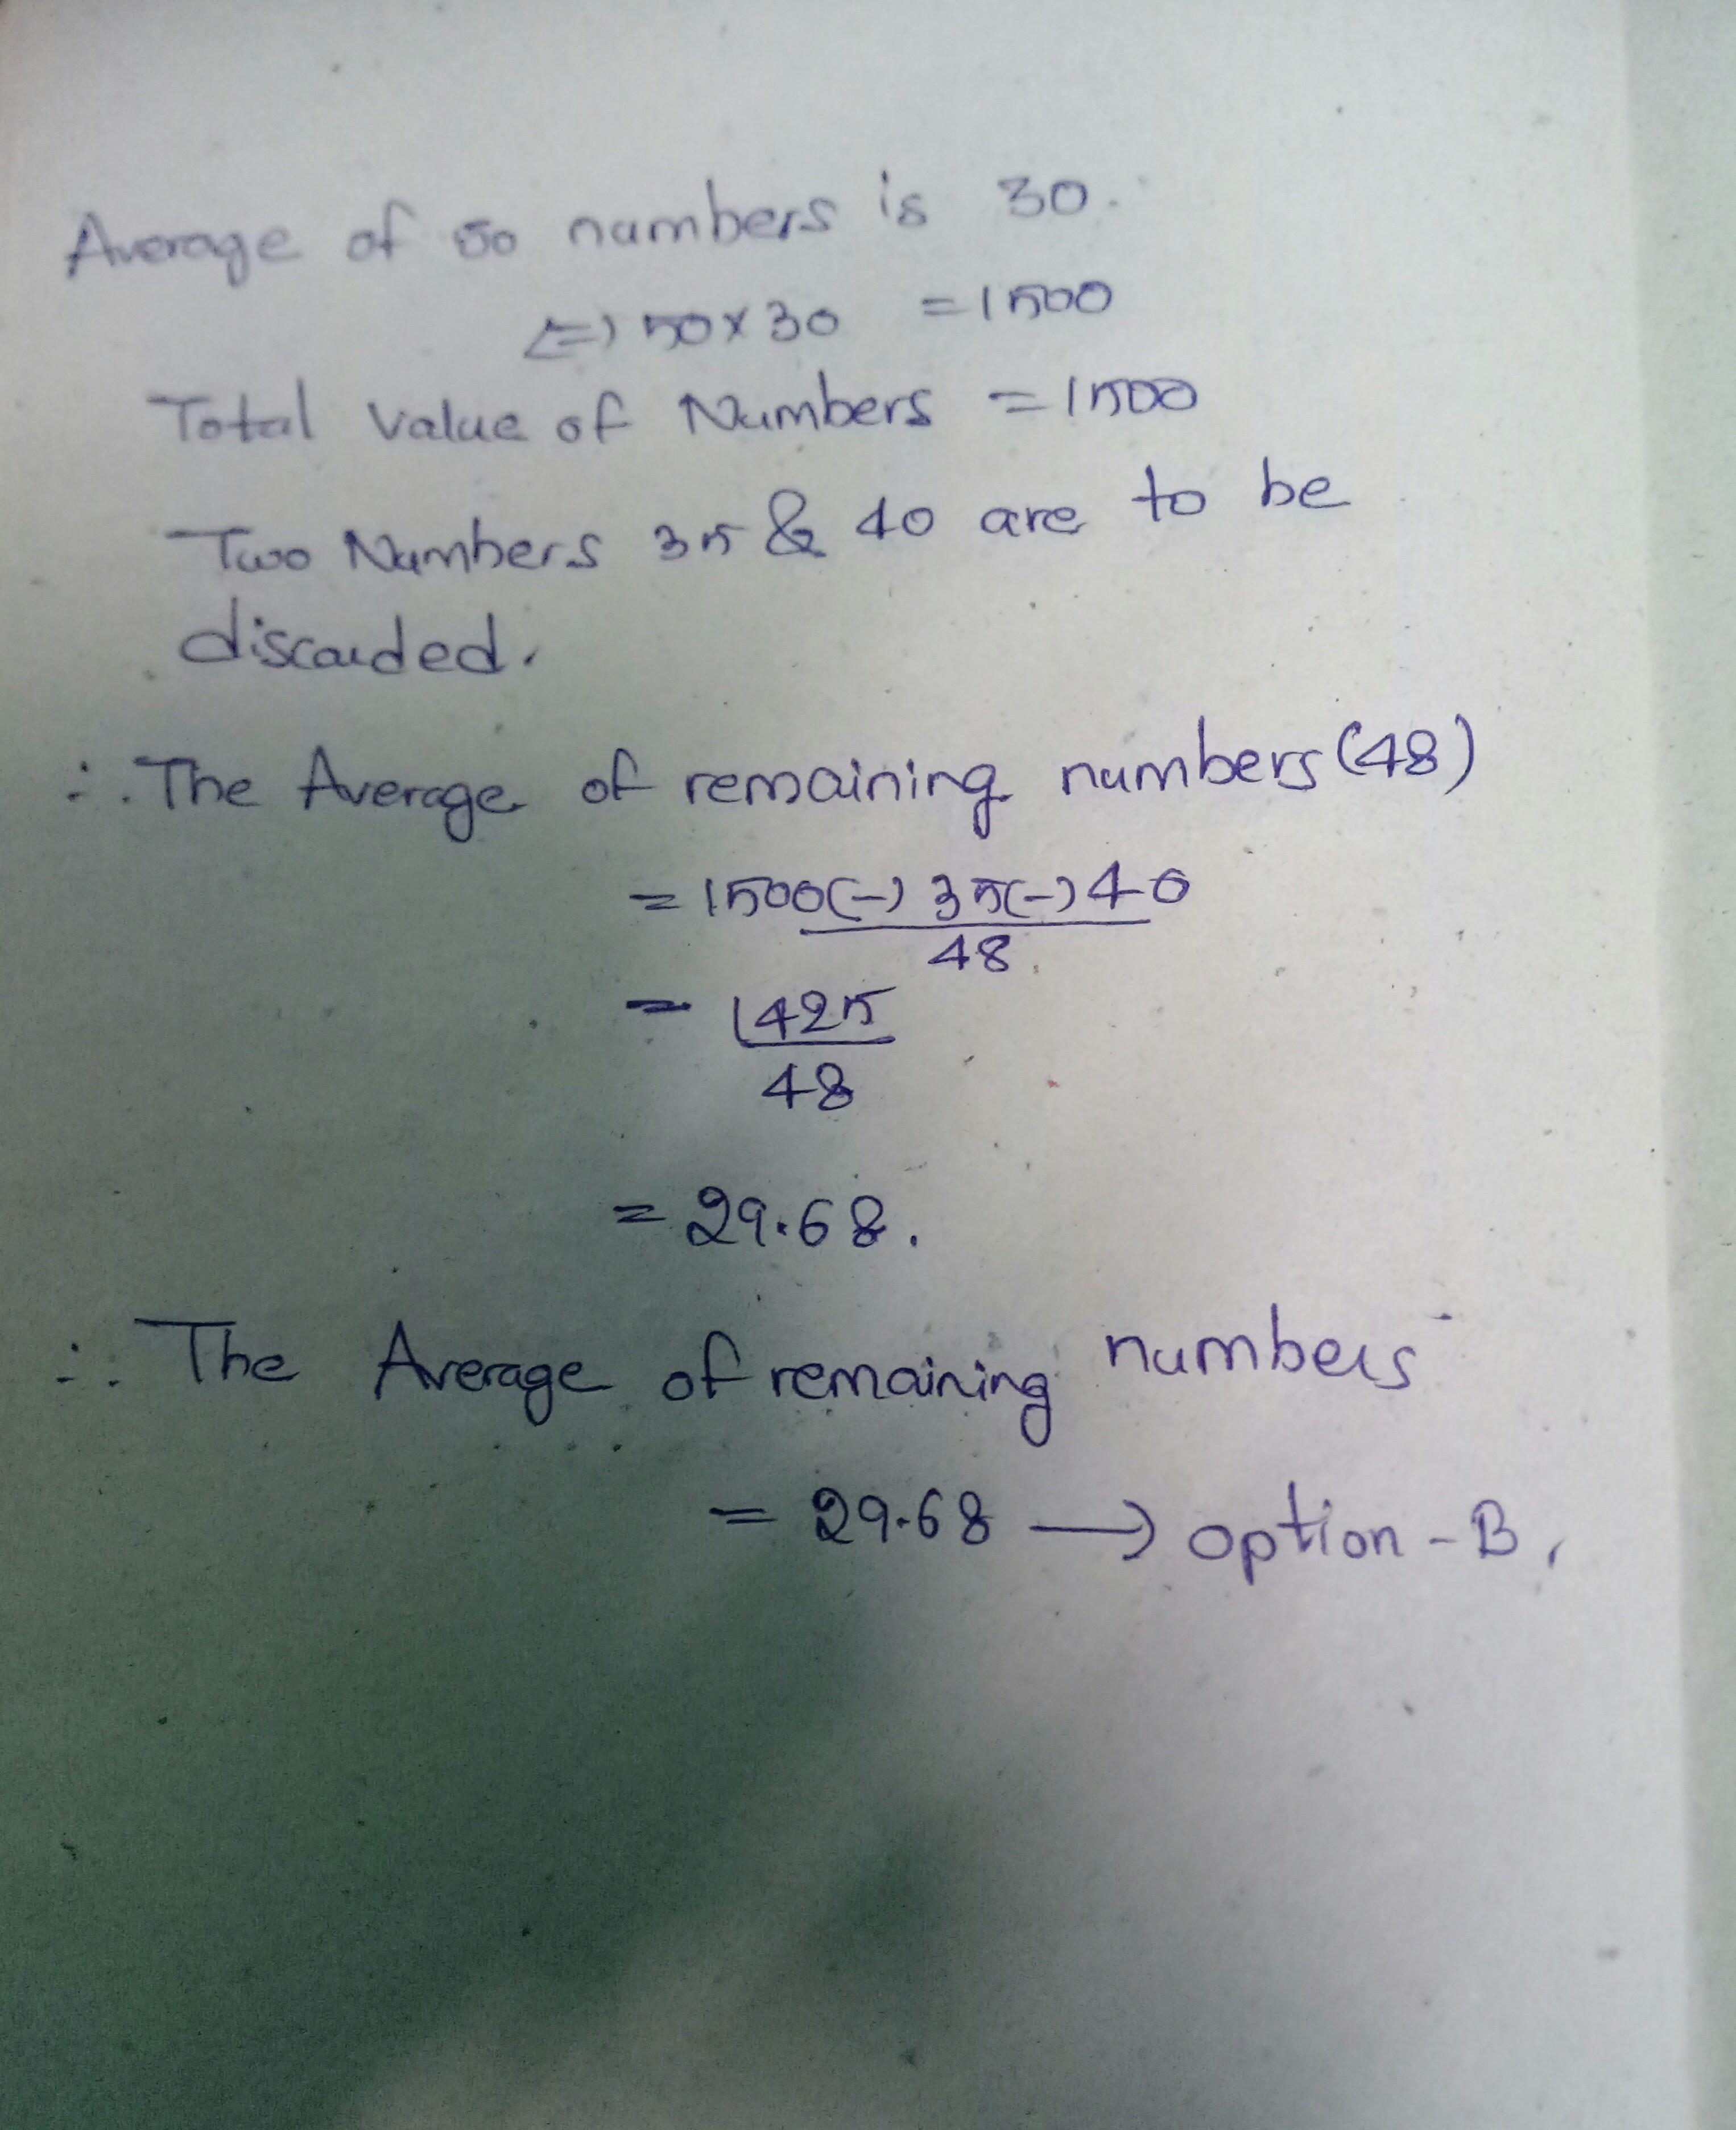 Average of 50 numbers is 30.
<=) 50 x 30 = 1500
Total value of Numbers = 1500
Two Numbers 35 & 40 are to be
discarded.
∴ The Average of remaining numbers (48)
= 1500 (-) 35 (-) 40
48
= 1425
48
= 29.68.
∴ The Average of remaining numbers
= 29.68 → option - B,